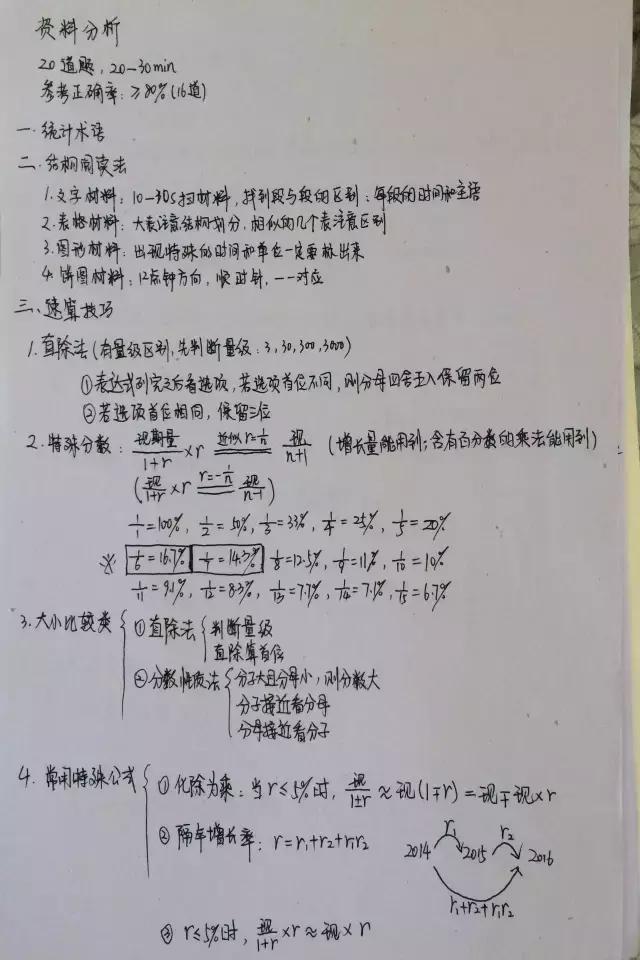 资料分析
20道题，20-30min
参考正确率：≥80%(16道)
一.统计术语
二.结构阅读法
1.文字材料：10-30s扫材料，找到段与段的区别：每段的时间和主语
2.表格材料：大表注意结构划分，相似的几个表注意区别
3.图形材料：出现特殊的时间和单位一定要标出来
4.饼图材料：12点钟方向，顺时针，一一对应
三.速算技巧
1.直除法(有量级区别，先判断量级：3,30,300,3000)
①表达式列完之后看选项，若选项首位不同，则分母四舍五入保留两位
②若选项首位相同，保留三位
2.特殊分数：现期量/1+r ×r 近似r=1/n 现/n+1 (增长量能用到；含有百分数的乘法能用到)
(现/1+r ×r r=-1/n 现/n-1)
1/1=100%，1/2=50%，1/3=33%，1/4=25%，1/5=20%
※ 1/6=16.7% 1/7=14.3% 1/8=12.5%，1/9=11%，1/10=10%
1/11=9.1%，1/12=8.3%，1/13=7.7%，1/14=7.1%，1/15=6.7%
3.大小比较类
①直除法
判断量级
直除算首位
②分数性质法
分子大且分母小，则分数大
分子接近看分母
分母接近看分子
4.常用特殊公式
①化除为乘：当r≤5%时，现/1±r≈现(1∓r)=现∓现×r
②隔年增长率：r=r₁+r₂+r₁r₂
r₁ r₂
2014 2015 2016
r₁+r₂+r₁r₂
③r≤5%时，现/1+r ×r≈现×r